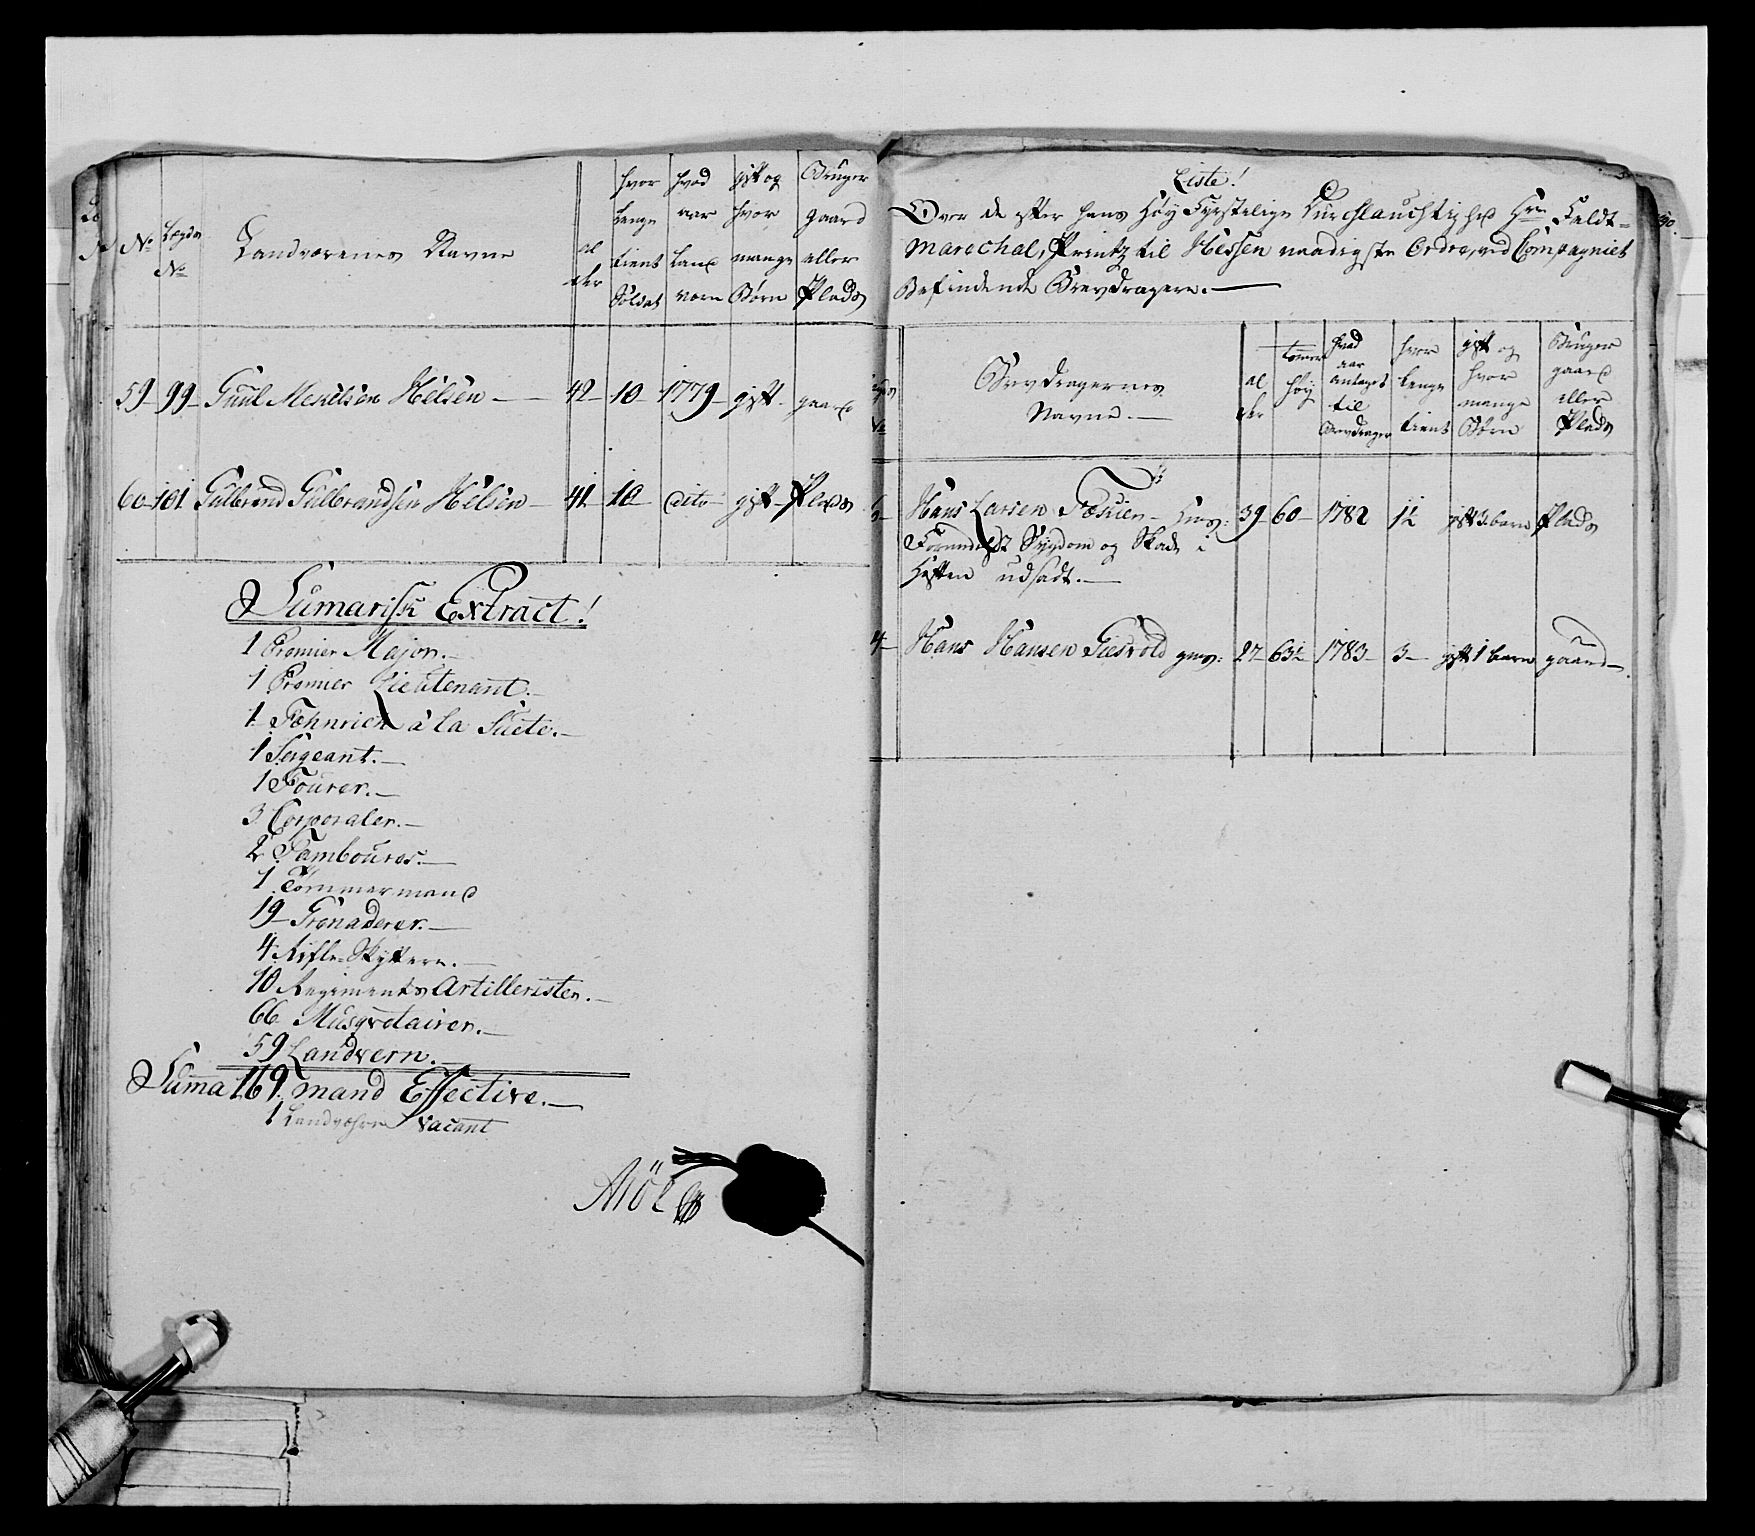 No
Lægds No
Landværnes Navne
al der
hvor lenge tient Soldat
hvad aar land vern
gift og hvor mange Børn
Bruger gaard eller Plads
59 - 99 - Guul Mekelsen Helsen - 42 - 10 - 1779 - gift - gaard
60 - 101 Gulbrand Gulbrandsen Helsen - 41 - 10 - dito - gift - Plads
Sumarisk Extract!
1 Premier Major.
1 Premier Lieutenant.
1 Fæhnrich à la Suete.
1 Sergeant.
1 Fourer.
3 Corporaler.
2 Tambourer.
1 Tømmermand
19 Grenaderer.
4 Rifle-Skyttere.
10 Regiments Artillerister.
66 Musqvetairer.
59 Landvern.
Suma 169 mand Effective.
1 Landværn vacant
Liste!
Over de efter hans Høy Fyrstelige Durchlauchtighed Hrr Feldt=
Marechal, Printz til Hessen naadigste Ordre, ved Compagniet
Befindende Brevdragere.
Brevdragernes Navne.
al der
tomer høy
hvad aar antaget til Brevdrager
hvor lenge tient
gift og hvor mange Børn
Bruger gaard eller Plads
Hans Larsen Foskien - 39 - 60 - 1782 1½ gift 3 barn Plads
Sygdom og Skade i
Høften udsadt.
4 - Hans Hansen Giesvold 27 - 63½ 1783 - 3 - gift 1 barn gaard